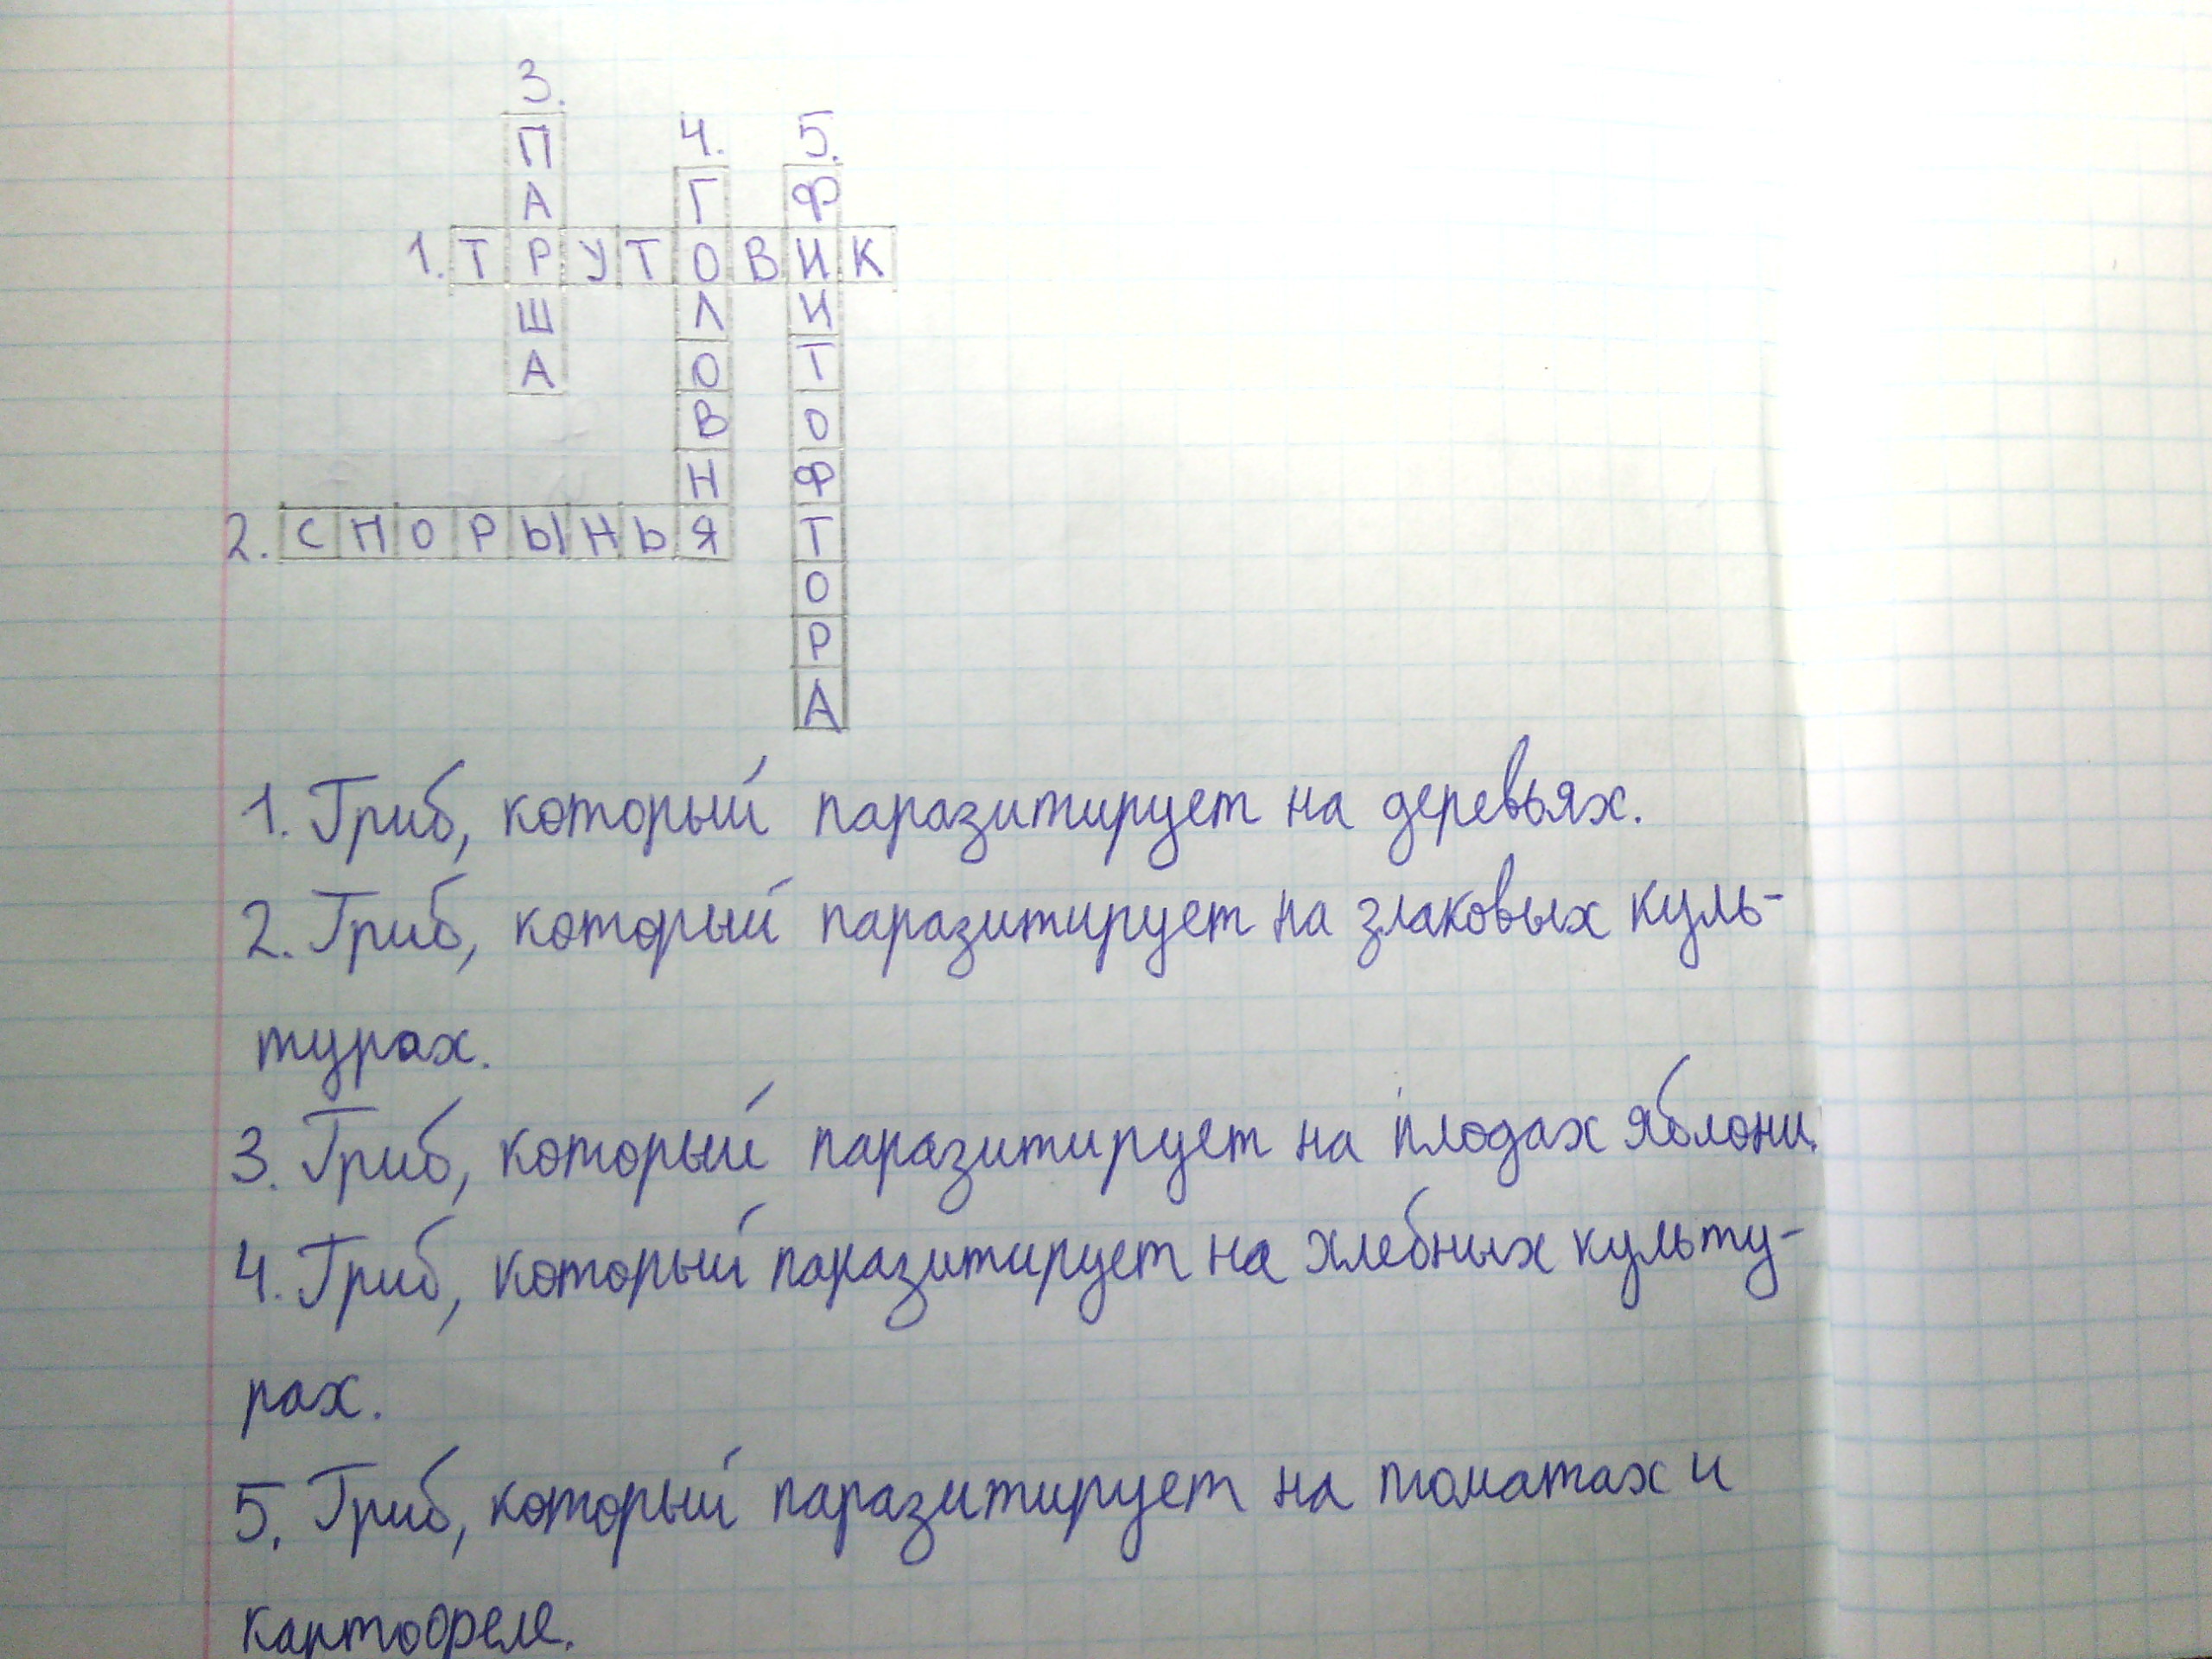 3. ПАРША
4. ГОЛОВНЯ
5. ФИИТОФТОРА
1. ТРУТОВИК
2. СПОРЫНЬЯ
1. Гриб, который паразитирует на деревьях.
2. Гриб, который паразитирует на злаковых куль-
турах.
3. Гриб, который паразитирует на плодах яблони.
4. Гриб, который паразитирует на хлебных культу-
рах.
5. Гриб, который паразитирует на томатах и
картофеле.